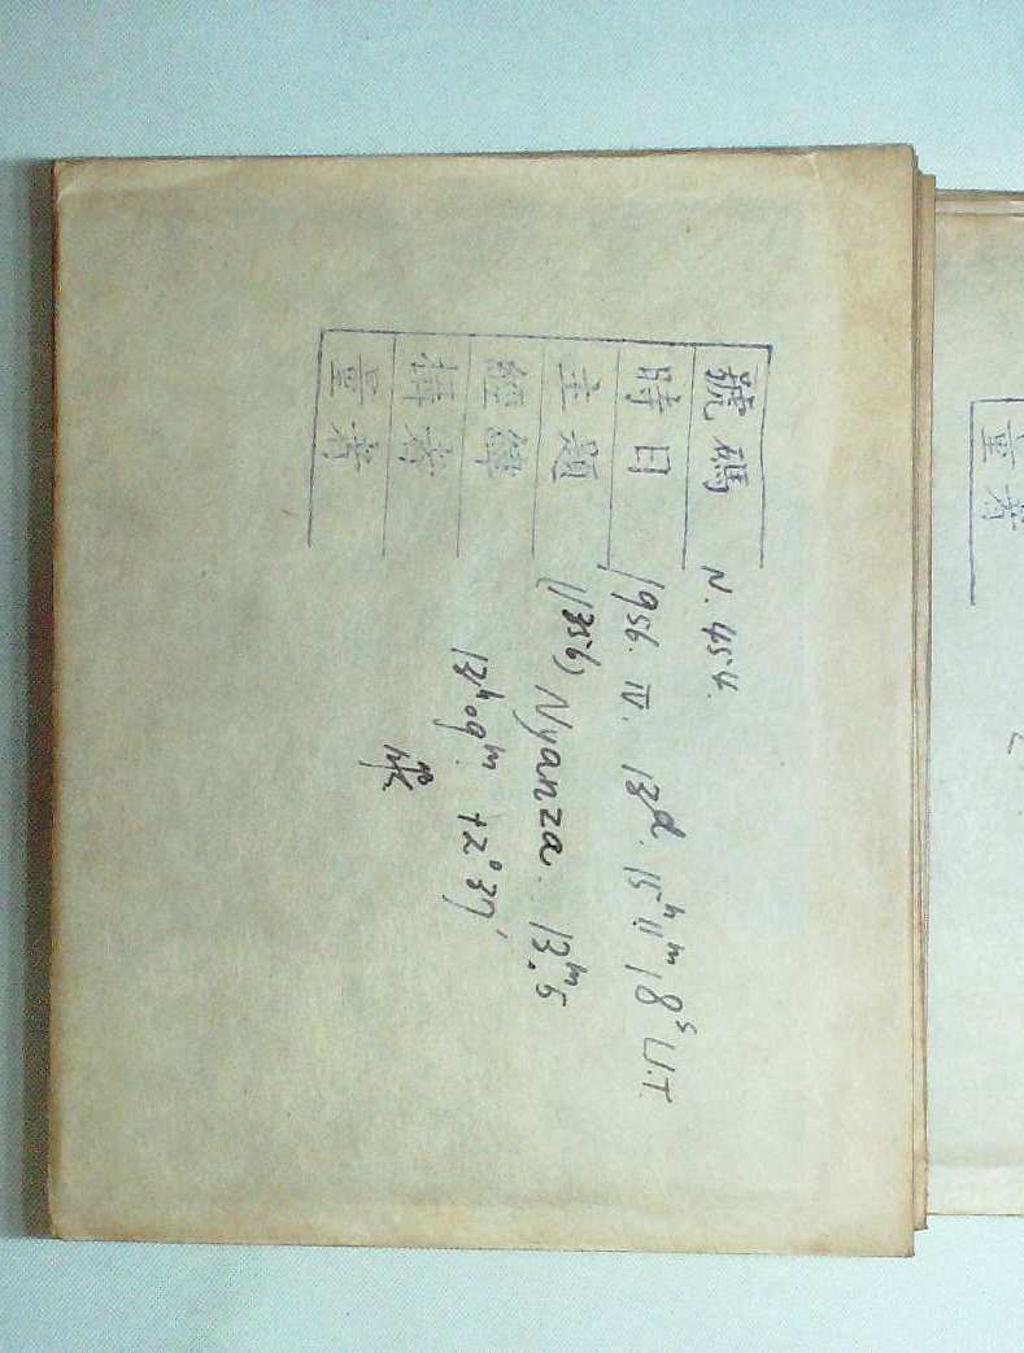 號碼 N. 454.
時日 1956. IV. 13d. 15h 11m 18s U.T
主題 (1356) Nyanza. 13m.5
經緯 13h09m. +2°37′
攝者
量者
量者